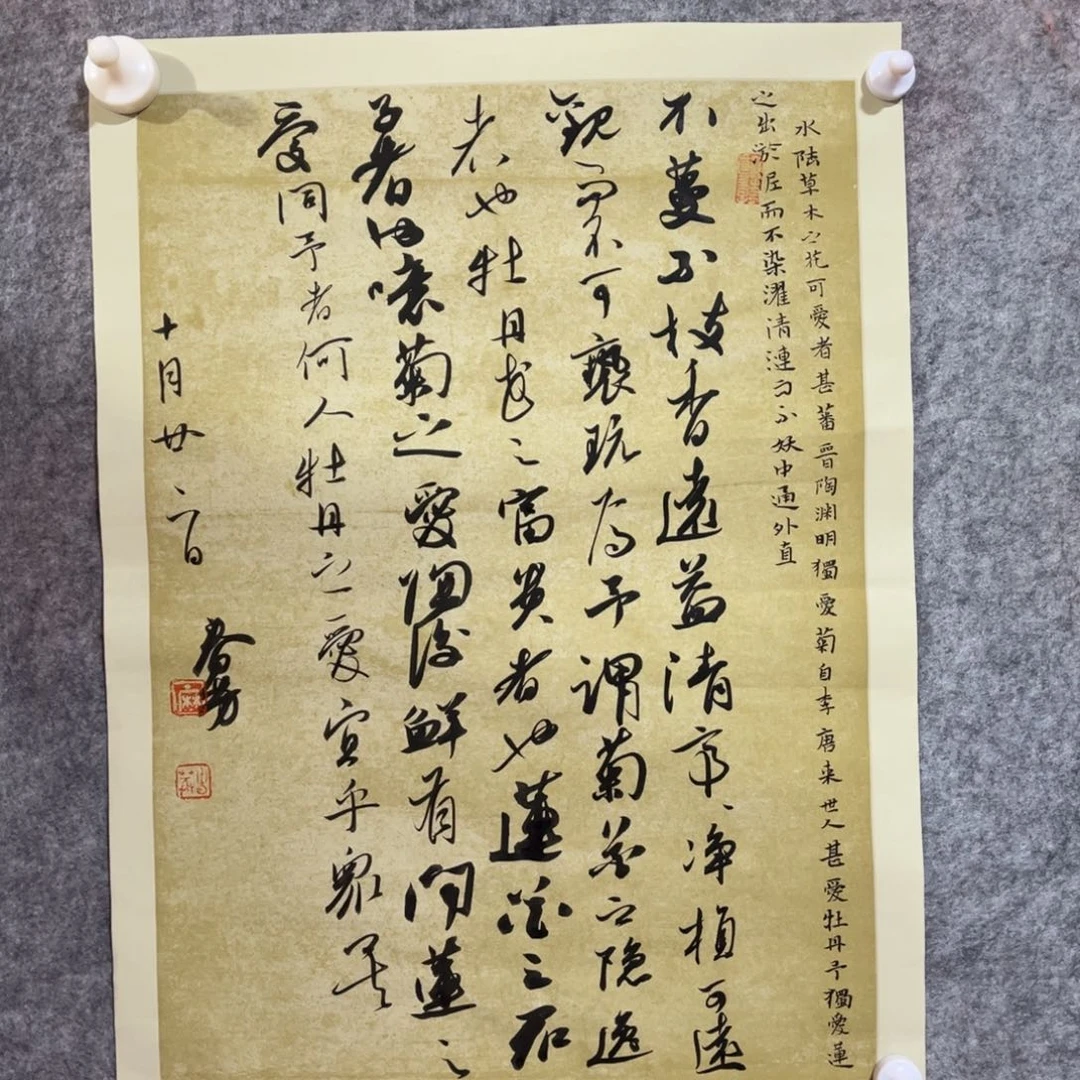 水陸草木之花可愛者甚蕃晉陶渊明獨愛菊自李唐来世人甚愛牡丹予獨愛蓮
之出於泥而不染濯清漣而不妖中通外直
不蔓不枝香遠益清亭、净植可遠
觀而不可褻玩焉予謂菊花之隐逸
者也牡丹花之富贵者也蓮花之君
子者也噫菊之愛陶後鮮有聞蓮之
愛同予者何人牡丹之愛宜乎眾矣
十月廿二日